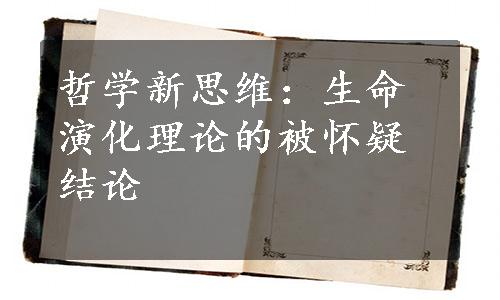 哲学新思维：生命
演化理论的被怀疑
结论